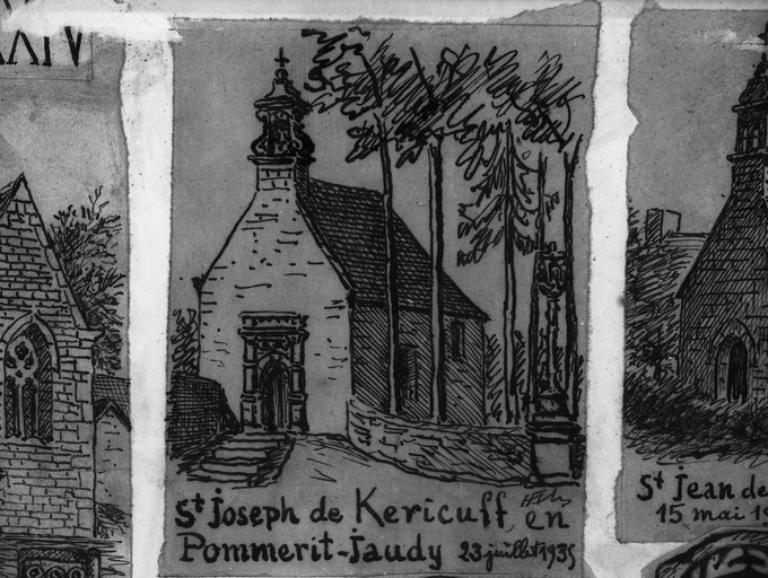 St Joseph de Kericuff en
Pommerit-Jaudy 23 juillet 1935
St Jean de
15 mai 19